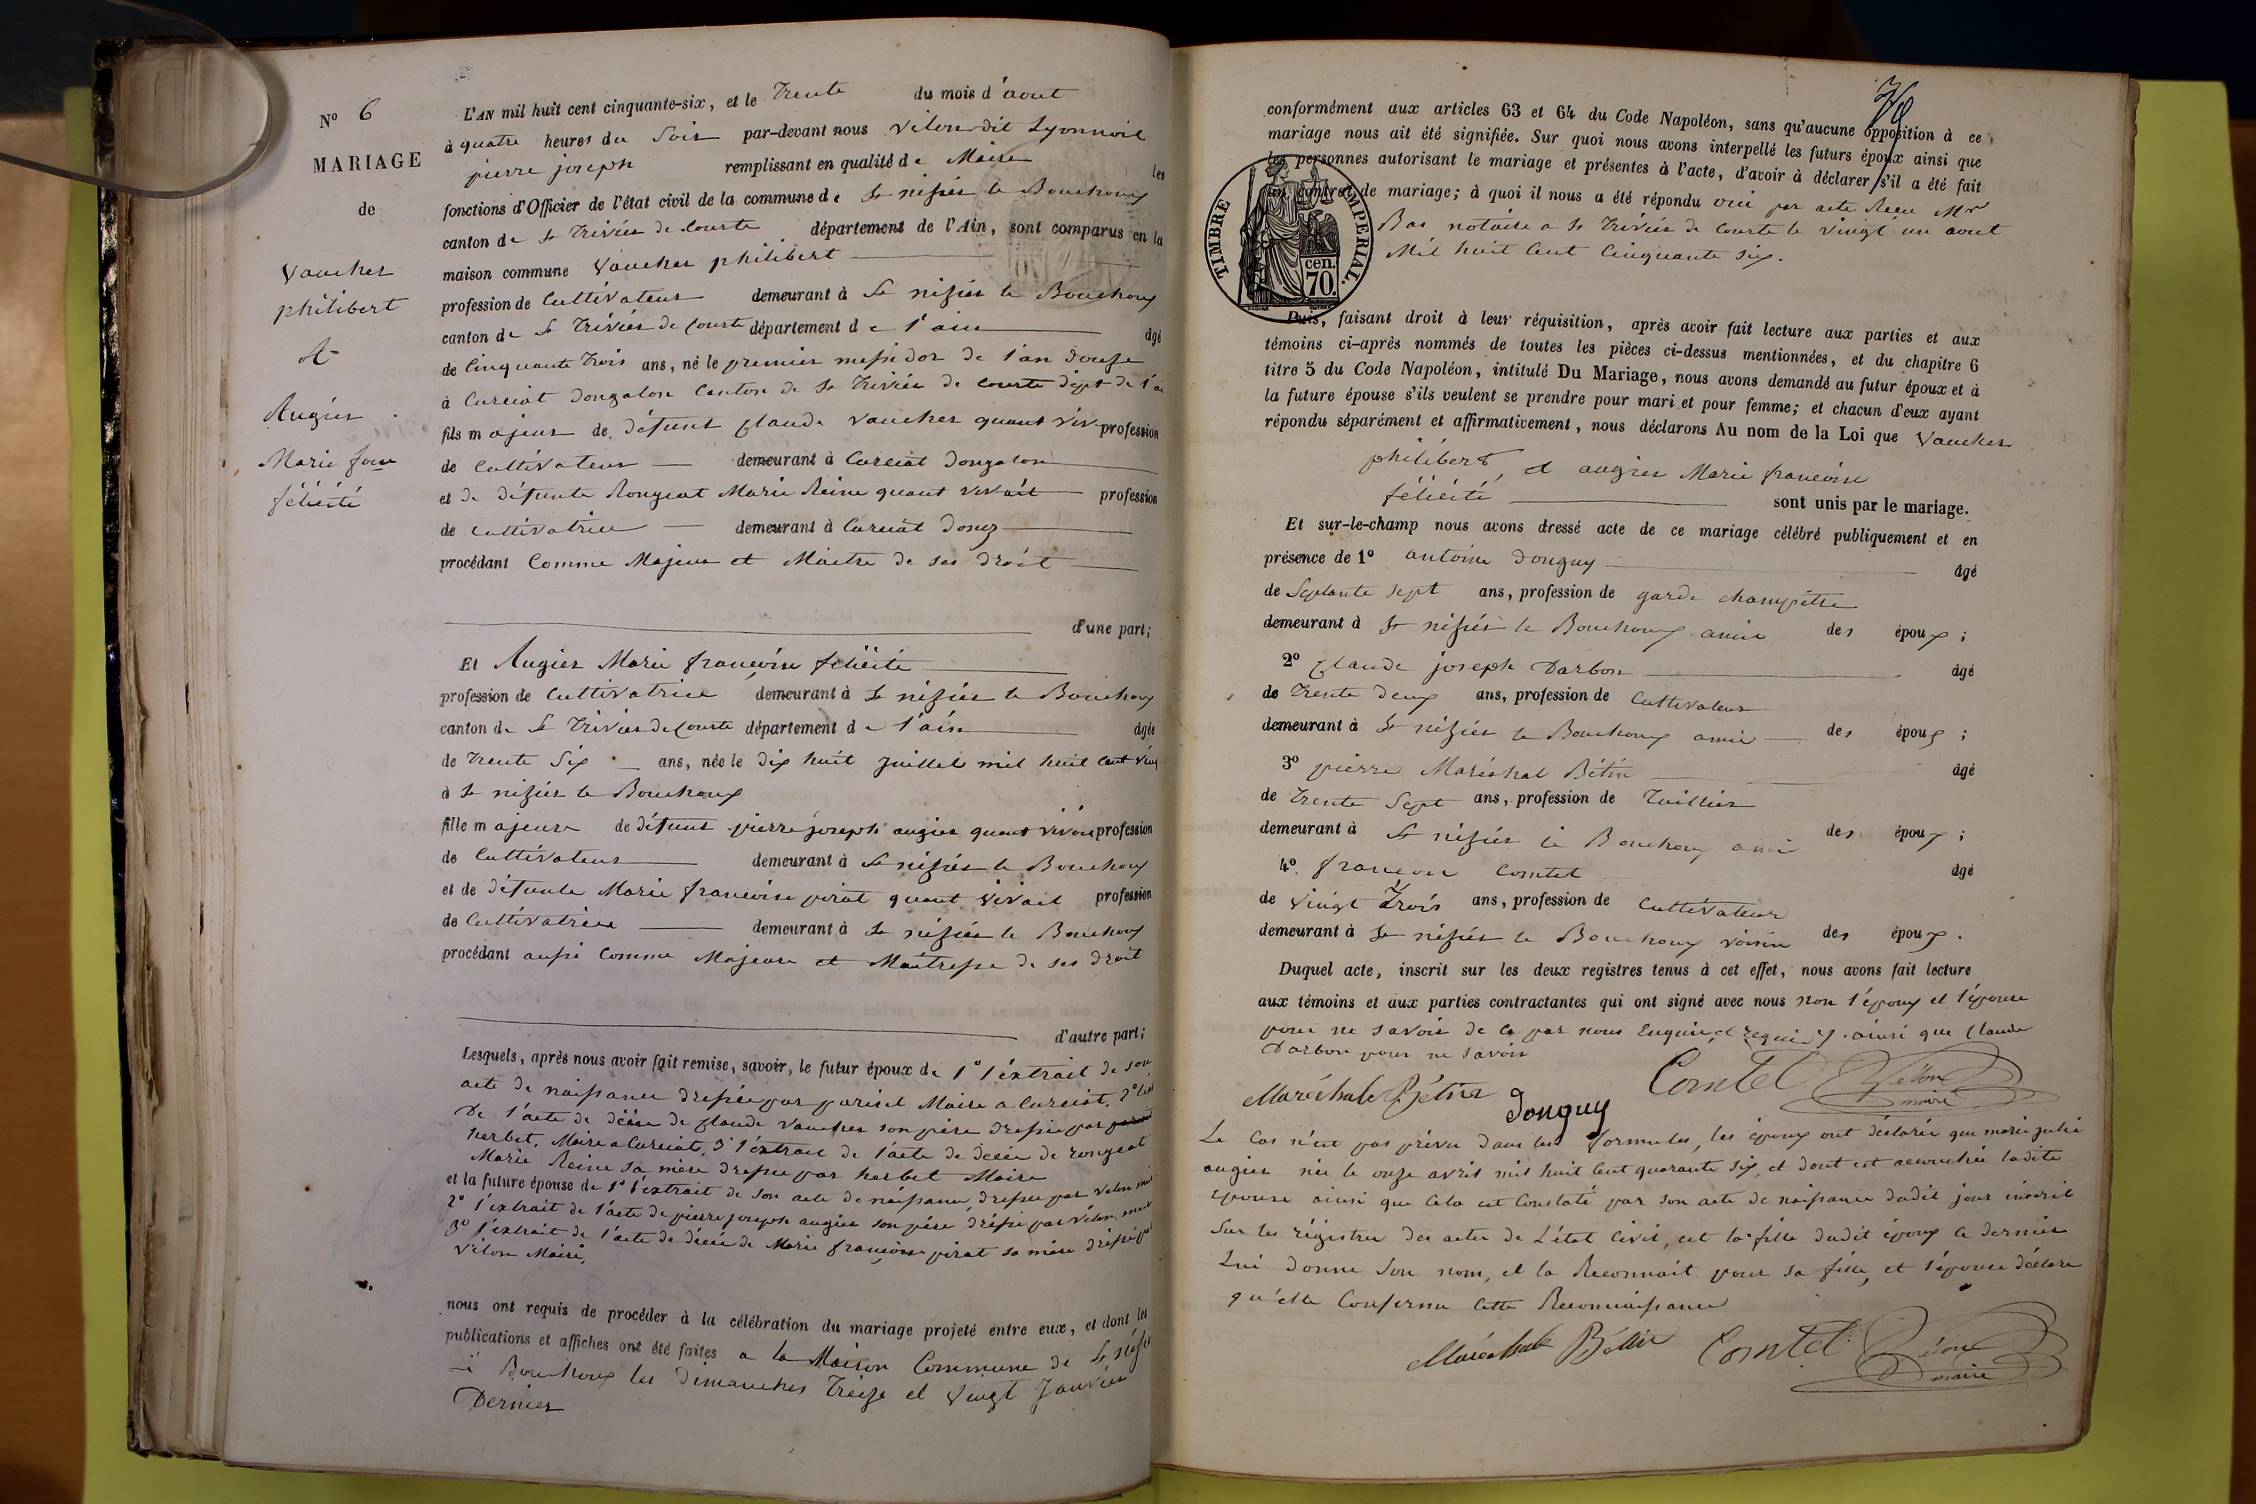 Nº 6
MARIAGE
de
Vaucher
philibert
et
Augier
Marie fcoise
félicité
L'AN mil huit cent cinquante-six, et le Trente du mois d'aout
à quatre heures du Soir par-devant nous Velon dit Lyonnois
pierre joseph remplissant en qualité de Maire les
fonctions d'Officier de l'état civil de la commune de St nizier le Bouchoux
canton de St Trivier de Courte département de l'Ain, sont comparus en la
maison commune Vaucher philibert
profession de Cultivateur demeurant à St nizier le Bouchoux
canton de St Trivier de Courte département de l'ain âgé
de Cinquante trois ans, né le premier messidor de l'an douze
à Curciat dongalon Canton de St Trivier de Courte dépt de l'ai
fils majeur de défunt Claude Vaucher quant viv profession
de Cultivateur demeurant à Curciat Dongalon
et de défunte Rongeat Marie Reine quant vivait profession
de Cultivatrice demeurant à Curciat Dong
procédant Comme Majeur et Maitre de ses droit
d'une part;
Et Augier Marie françoise félicité
profession de Cultivatrice demeurant à St nizier le Bouchoux
canton de St Trivier de Courte département de l'ain âgée
de Trente Six ans, née le dix huit juillet mil huit cent vin
à St nizier le Bouchoux
fille majeure de défunt pierre joseph augier quant vivoit profession
de Cultivateur demeurant à St nizier le Bouchoux
et de défunte Marie francoise pirat quant vivait profession
de Cultivatrice demeurant à St nizier le Bouchoux
procédant aussi Comme Majeure et Maitresse de ses droit
d'autre part;
Lesquels, après nous avoir fait remise, savoir, le futur époux de 1º l'éxtrait de son
acte de naissance dressée par parisel Maire a Curciat. 2º l'ext
De l'acte de décée de Claude Vaucher son père dressée par
herbet, Maire a Curciat, 3º l'éxtrait de l'acte de décée de rongeat
Marie Reine sa mère dressée par herbet Maire
et la future épouse de 1º l'extrait de son acte de naissance, dressée par Velon
2º l'extrait de l'acte de pierre joseph augier son père dréssé par Vélon
3º l'extrait de l'acte de décée de Marie françoise pirat sa mère dressé p
Vélon Maire,
nous ont requis de procéder à la célébration du mariage projeté entre eux, et dont les
publications et affiches ont été faites a la Maison Commune de St nizier
le Bouchoux les dimanches Treize et Vingt Janvier
Dernier
conformément aux articles 63 et 64 du Code Napoléon, sans qu'aucune opposition à ce
mariage nous ait été signifiée. Sur quoi nous avons interpellé les futurs époux ainsi que
les personnes autorisant le mariage et présentes à l'acte, d'avoir à déclarer s'il a été fait
un contrat de mariage; à quoi il nous a été répondu oui par acte Reçu Mr
Bas notaire a St Trivier de Courte le vingt un aout
Mil huit Cent Cinquante six.
TIMBRE IMPERIAL.
70 cen.
Puis, faisant droit à leur réquisition, après avoir fait lecture aux parties et aux
témoins ci-après nommés de toutes les pièces ci-dessus mentionnées, et du chapitre 6
titre 5 du Code Napoléon, intitulé Du Mariage, nous avons demandé au futur époux et à
la future épouse s'ils veulent se prendre pour mari et pour femme; et chacun d'eux ayant
répondu séparément et affirmativement, nous déclarons Au nom de la Loi que Vaucher
philibert, et augier Marie francoise
félicité sont unis par le mariage.
Et sur-le-champ nous avons dressé acte de ce mariage célébré publiquement et en
présence de 1º antoine Donguy âgé
de Septante sept ans, profession de garde champêtre
demeurant à St nizier le Bouchoux amie des époux;
2º Claude joseph Darbon âgé
de Trente deux ans, profession de Cultivateur
demeurant à St nizier le Bouchoux amie des époux;
3º pierre Maréchal Bétin âgé
de Trente Sept ans, profession de Taillier
demeurant à St nizier le Bouchoux ami des époux;
4º. françois Comtet âgé
de Vingt Trois ans, profession de Cultivateur
demeurant à St nizier le Bouchoux voisin des époux.
Duquel acte, inscrit sur les deux registres tenus à cet effet, nous avons fait lecture
aux témoins et aux parties contractantes qui ont signé avec nous non l'époux et l'épouse
pour ne savoir de ce par nous Enquis et requis. ainsi que Claude
Darbon pour ne savoir
Comtet Vélon maire
Maréchal Bétin Donguy
Le Cas n'est pas prévu dans les formules, les époux ont déclarée que marie julie
augier née le onze avril mil huit Cent quarante six, et dont est accouchée ladite
Epouse ainsi que Cela est Constaté par son acte de naissance dudit jour inscrit
Sur les régistres des actes de L'état Civil, est la fille dudit époux ce dernier
Lui donne Son nom, et la Reconnait pour Sa fille, et l'épouse déclare
qu'elle Confirme Cette Reconnaissance
Maréchal Bétin Comtet Vélon maire